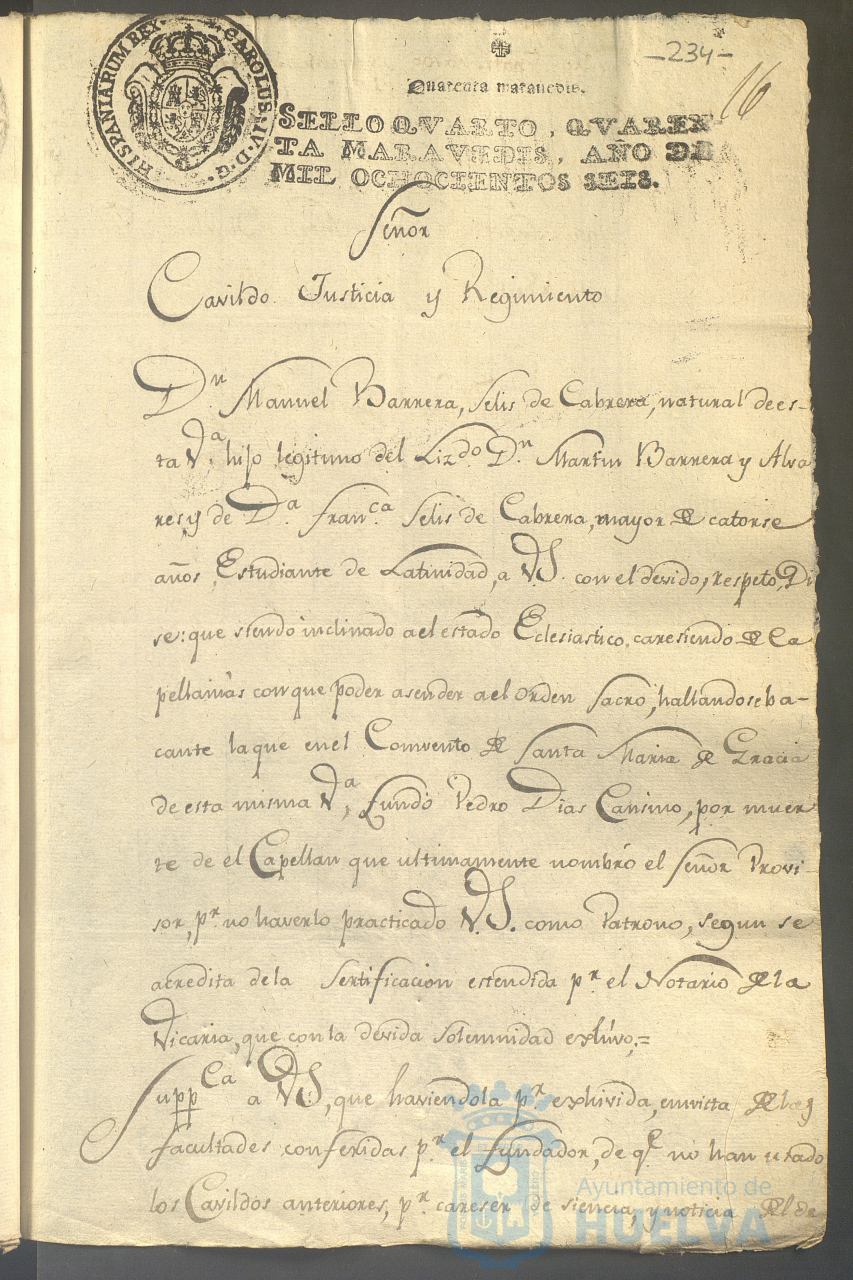 -234-
16
Quarenta maravedis.
HISPANIARUM REX CAROLUS IV D. G.
SELLO QVARTO, QVAREN
TA MARAVEDIS, AÑO DE
MIL OCHOCIENTOS SEIS.
Señor
Cavildo Justicia y Regimiento
Dn Manuel Barrera, Selis de Cabrera, natural de es-
ta Va. hijo legitimo del Lizdo Dn Martin Barrera y Alva
res, y de Da franca Selis de Cabrera, mayor de catorse
años, Estudiante de Latinidad, a V.S. con el devido, respeto, Di
se: que siendo inclinado a el estado Eclesiastico, caresiendo de Ca
pellanias con que poder asender a el orden Sacro, hallandose ba-
cante la que en el Comvento de Santa Maria de Gracia
de esta misma Va, fundó Pedro Dias Cansino, por muer
te de el Capellan que ultimamente nombró el Señor Provi-
sor, pr. no haverlo practicado V.S. como Patrono, segun se
acredita de la Sertificacion estendida pr el Notario de la
Vicaria, que con la devida solemnidad exhivo;=
Suppca a V.S, que haviendola pr exhivida, en vista de las
facultades conferidas pr el fundador, de qe no han usado
los Cavildos anteriores, pr careser de siencia, y noticia del de
Ayuntamiento de
HUELVA